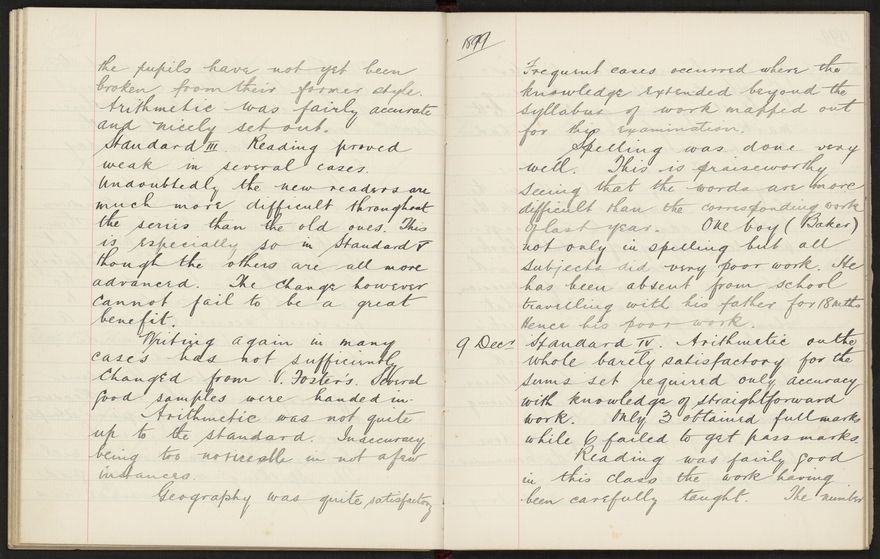 the pupils have not yet been
broken from their former style.
Arithmetic was fairly accurate
and nicely set out.
Standard III. Reading proved
weak in several cases.
Undoubtedly the new readers are
much more difficult throughout
the series than the old ones. This
is especially so in Standard V
though the others are all more
advanced. The change however
cannot fail to be a great
benefit.
Writing again in many
cases has not sufficiently
changed from V. Foster's. Several
good samples were handed in.
Arithmetic was not quite
up to the standard. Inaccuracy
being too noticeable in not a few
instances.
Geography was quite satisfactory
1897
Frequent cases occurred where the
knowledge extended beyond the
syllabus of work mapped out
for this examination.
Spelling was done very
well. This is praiseworthy
seeing that the words are more
difficult than the corresponding work
of last year. One boy (Baker)
not only in spelling but all
subjects did very poor work. He
has been absent from school
travelling with his father for 18 mths
Hence his poor work.
9 Decr Standard IV. Arithmetic on the
whole barely satisfactory for the
sums set required only accuracy
with knowledge of straightforward
work. Only 3 obtained full marks
while 6 failed to get pass marks.
Reading was fairly good
in this class the work having
been carefully taught. The number